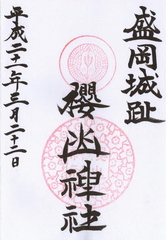 盛岡城趾
櫻山神社
平成二十一年三月二十二日